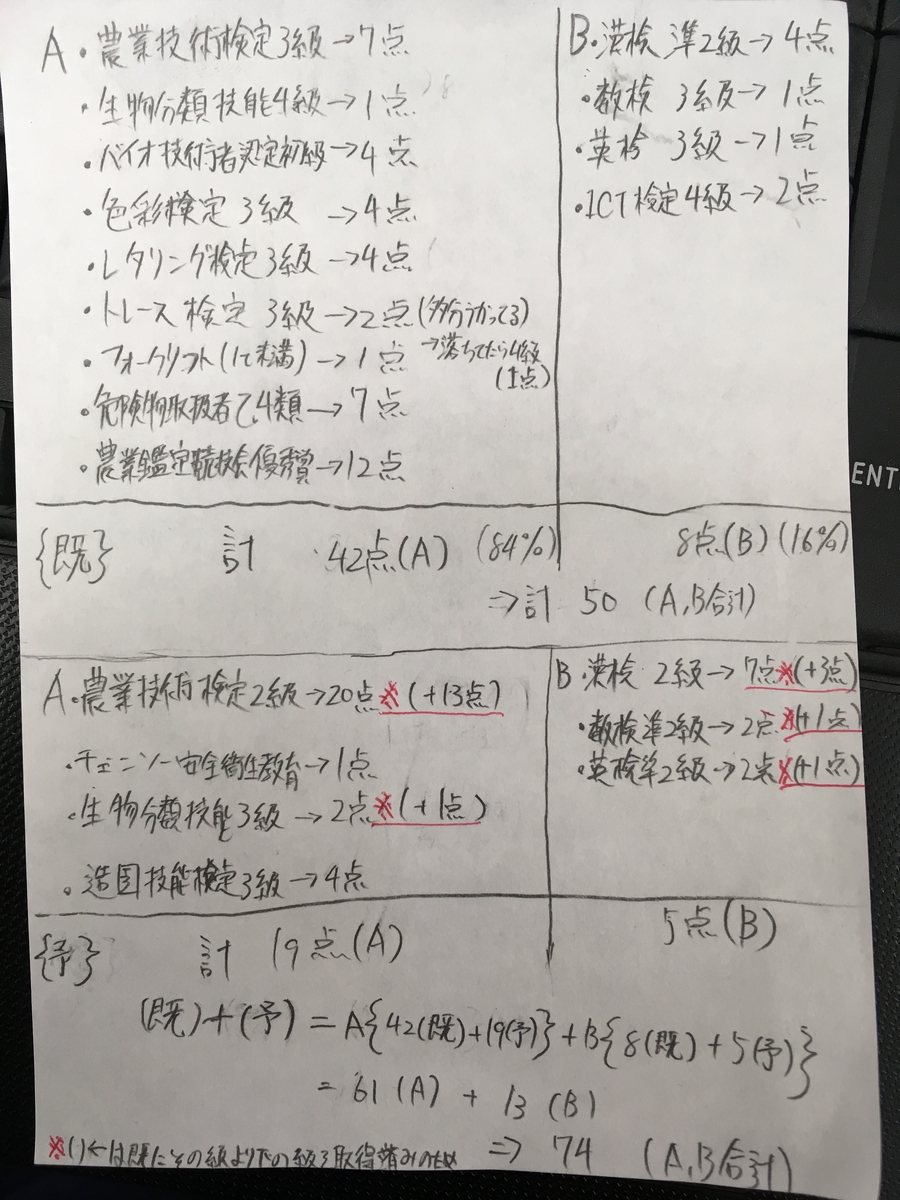 A・農業技術検定3級→7点
・生物分類技能4級→1点
・バイオ技術者認定初級→4点
・色彩検定3級→4点
・レタリング検定3級→4点
・トレース検定3級→2点(多分うかってる)
→落ちてたら4級
(1点)
・フォークリフト(1t未満)→1点
・危険物取扱者乙.4類→7点
・農業鑑定競技会優秀賞→12点
B・漢検 準2級→4点
・数検 3級→1点
・英検 3級→1点
・ICT検定4級→2点
{既} 計 42点(A) (84%) 8点(B)(16%)
⇒計 50 (A,B合計)
A・農業技術検定2級→20点※(+13点)
・チェンソー安全衛生教育→1点
・生物分類技能3級→2点※(+1点)
・造園技能検定3級→4点
B・漢検 2級→7点※(+3点)
・数検準2級→2点※(+1点)
・英検準2級→2点※(+1点)
{予} 計 19点(A) 5点(B)
(既)+(予)=A{42(既)+19(予)}+B{8(既)+5(予)}
=61(A)+13(B)
⇒ 74 (A,B合計)
※()←は既にその級より下の級を取得済みのため
ENT